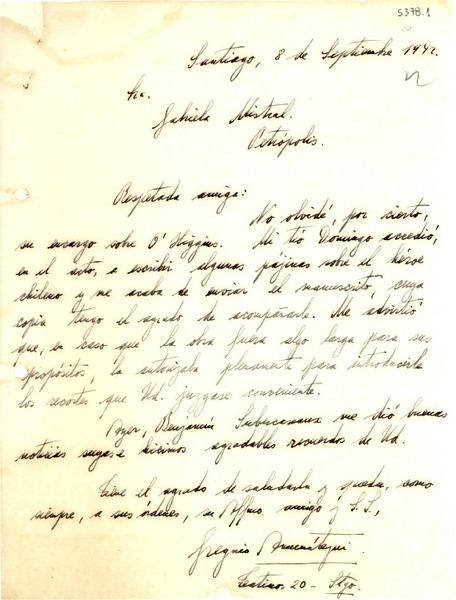 5378.1
Santiago, 8 de Septiembre 1942.
Sra.
Gabriela Mistral.
Petrópolis.
Respetada amiga:
No olvidé, por cierto,
su encargo sobre O'Higgins. Mi tío Domingo accedió,
en el acto, a escribir algunas páginas sobre el héroe
chileno y me acaba de enviar el manuscrito, cuya
copia tengo el agrado de acompañarle. Me advirtió
que, en caso que la obra fuera algo larga para sus
propósitos, la autorizaba plenamente para introducirle
los recortes que Ud. juzgase conveniente.
Ayer, Benjamín Subercaseaux me dió buenas
noticias suyas e hicimos agradables recuerdos de Ud.
Tiene el agrado de saludarla y queda, como
siempre, a sus órdenes, su Affmo. amigo y S.S.,
Gregorio Amunátegui.
Teatinos 20 - Stgo.